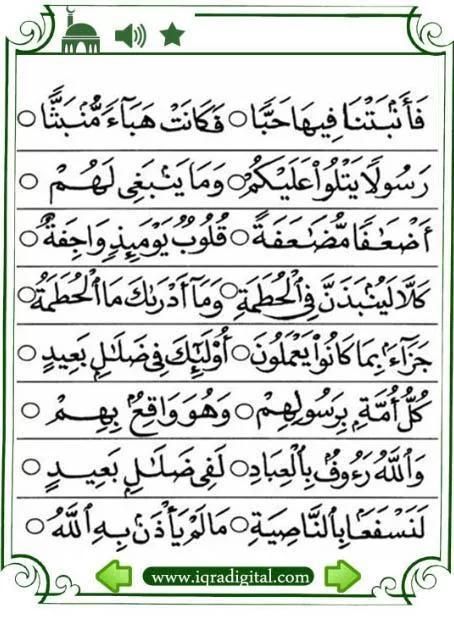 فَأَنۢبَتْنَا فِيهَا حَبًّا ○ فَكَانَتْ هَبَآءً مُّنۢبَثًّا ○
رَسُولًا يَتْلُوا۟ عَلَيْكُمْ ○ وَمَا يَنۢبَغِى لَهُمْ ○
أَضْعَـٰفًا مُّضَـٰعَفَةً ○ قُلُوبٌ يَوْمَئِذٍ وَاجِفَةٌ ○
كَلَّا لَيُنۢبَذَنَّ فِى ٱلْحُطَمَةِ ○ وَمَآ أَدْرَىٰكَ مَا ٱلْحُطَمَةُ ○
جَزَآءًۢ بِمَا كَانُوا۟ يَعْمَلُونَ ○ أُو۟لَـٰٓئِكَ فِى ضَلَـٰلٍۭ بَعِيدٍ ○
كُلُّ أُمَّةٍۭ بِرَسُولِهِمْ ○ وَهُوَ وَاقِعٌۢ بِهِمْ ○
وَٱللَّهُ رَءُوفٌۢ بِٱلْعِبَادِ ○ لَفِى ضَلَـٰلٍۭ بَعِيدٍ ○
لَنَسْفَعًۢا بِٱلنَّاصِيَةِ ○ مَا لَمْ يَأْذَنۢ بِهِ ٱللَّهُ ○
www.iqradigital.com